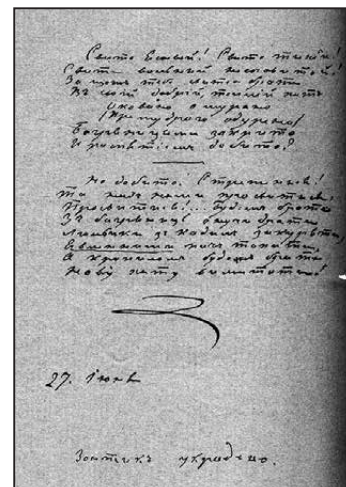 Світе Ясный! Світе тихий!
Світе вольный несповитый!
За що жъ тебе, світе брате
Въ своій добрій, теплій хаті
Оковано омурано
(Премудрого одурено)
Багряницями закрито
И розпятіем добито?
Не добито! Стрепенись!
Та надъ нами просвитись,
Просвитись!.. Будемъ брате
Зъ багряниць онучі драти
Люльки зъ кадилъ закурять,
Явленними пічъ топити,
А кропиломъ будемъ брате
Нову хату вимітати!
27. Іюня
Зонтикъ украдено.